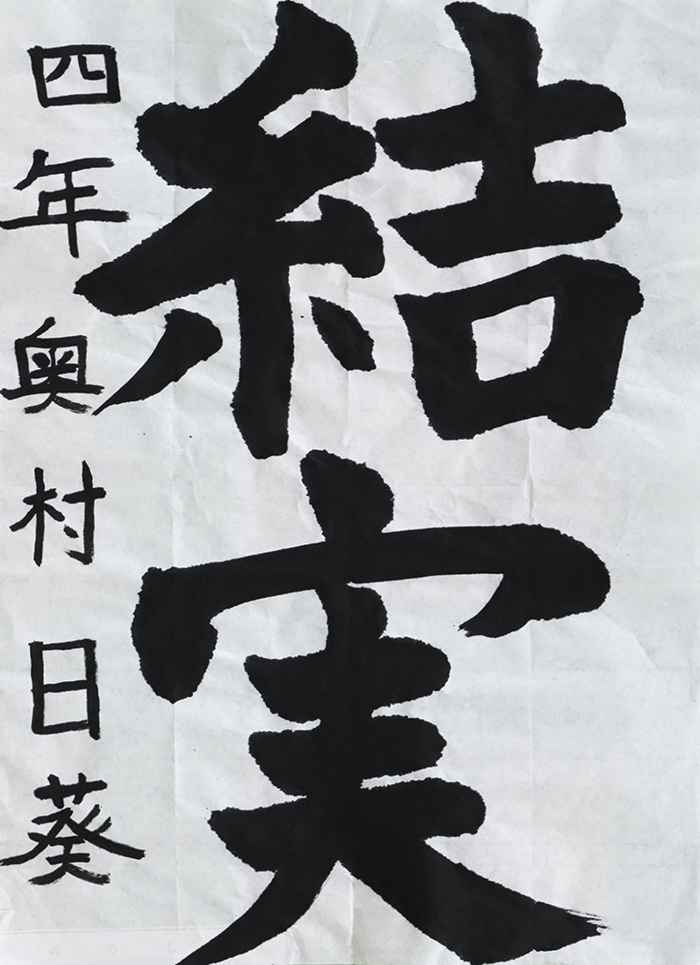 結実
四年奥村日葵